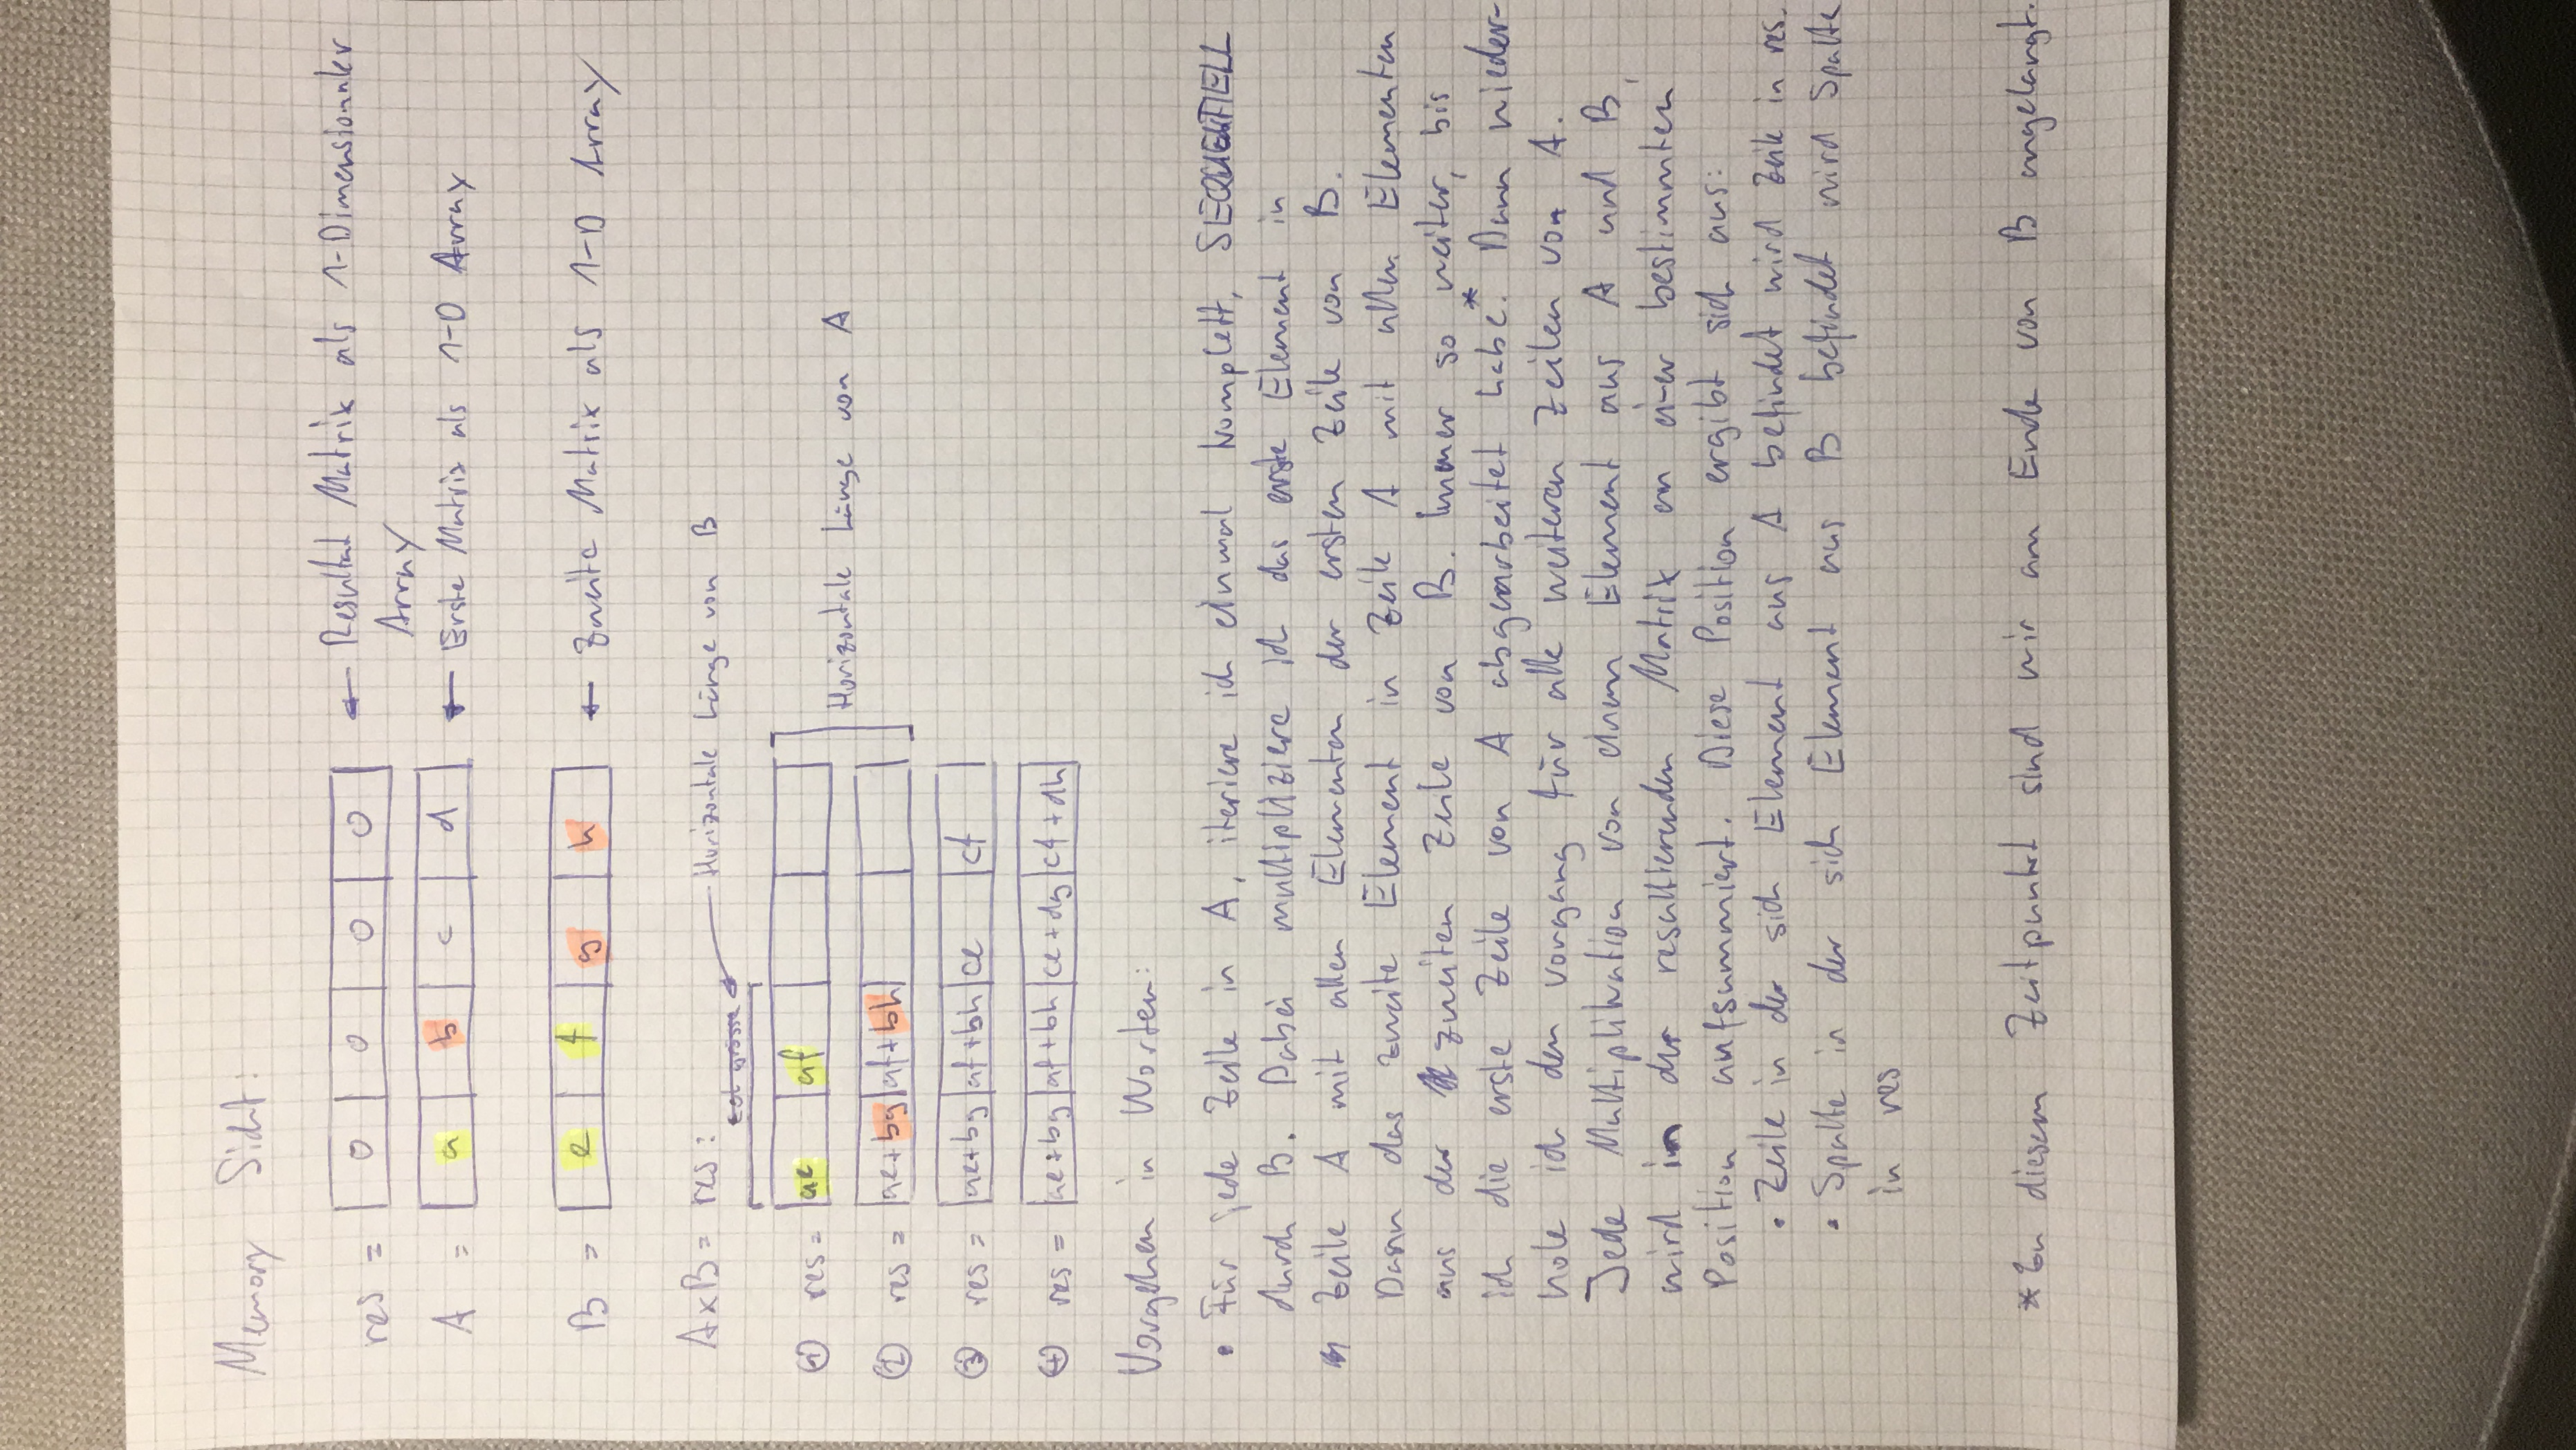 Memory Sicht:
res = 0 0 0 0 ← Resultat Matrix als 1-Dimensionaler
Array
A = a b c d ← Erste Matrix als 1-D Array
B = e f g h ← Zweite Matrix als 1-D Array
A×B = res: Horizontale Länge von B
① res = ae af
Horizontale Länge von A
② res = ae+bg af+bh
③ res = ae+bg af+bh ce cf
④ res = ae+bg af+bh ce+dg cf+dh
Vorgehen in Worten:
• Für jede Zeile in A, iteriere ich einmal komplett, SEQUENTIELL
durch B. Dabei multipliziere ich das erste Element in
Zeile A mit allen Elementen der ersten Zeile von B.
Dann das zweite Element in Zeile A mit allen Elementen
aus der zweiten Zeile von B. Immer so weiter, bis
ich die erste Zeile von A abgearbeitet habe.* Dann wieder-
hole ich den vorgang für alle weiteren Zeilen von A.
Jede Multiplikation von einem Element aus A und B,
wird in der resultierenden Matrix an einer bestimmten
Position aufsummiert. Diese Position ergibt sich aus:
• Zeile in der sich Element aus A befindet wird Zeile in res.
• Spalte in der sich Element aus B befindet wird Spalte
in res
* Zu diesem Zeitpunkt sind wir am Ende von B angelangt.